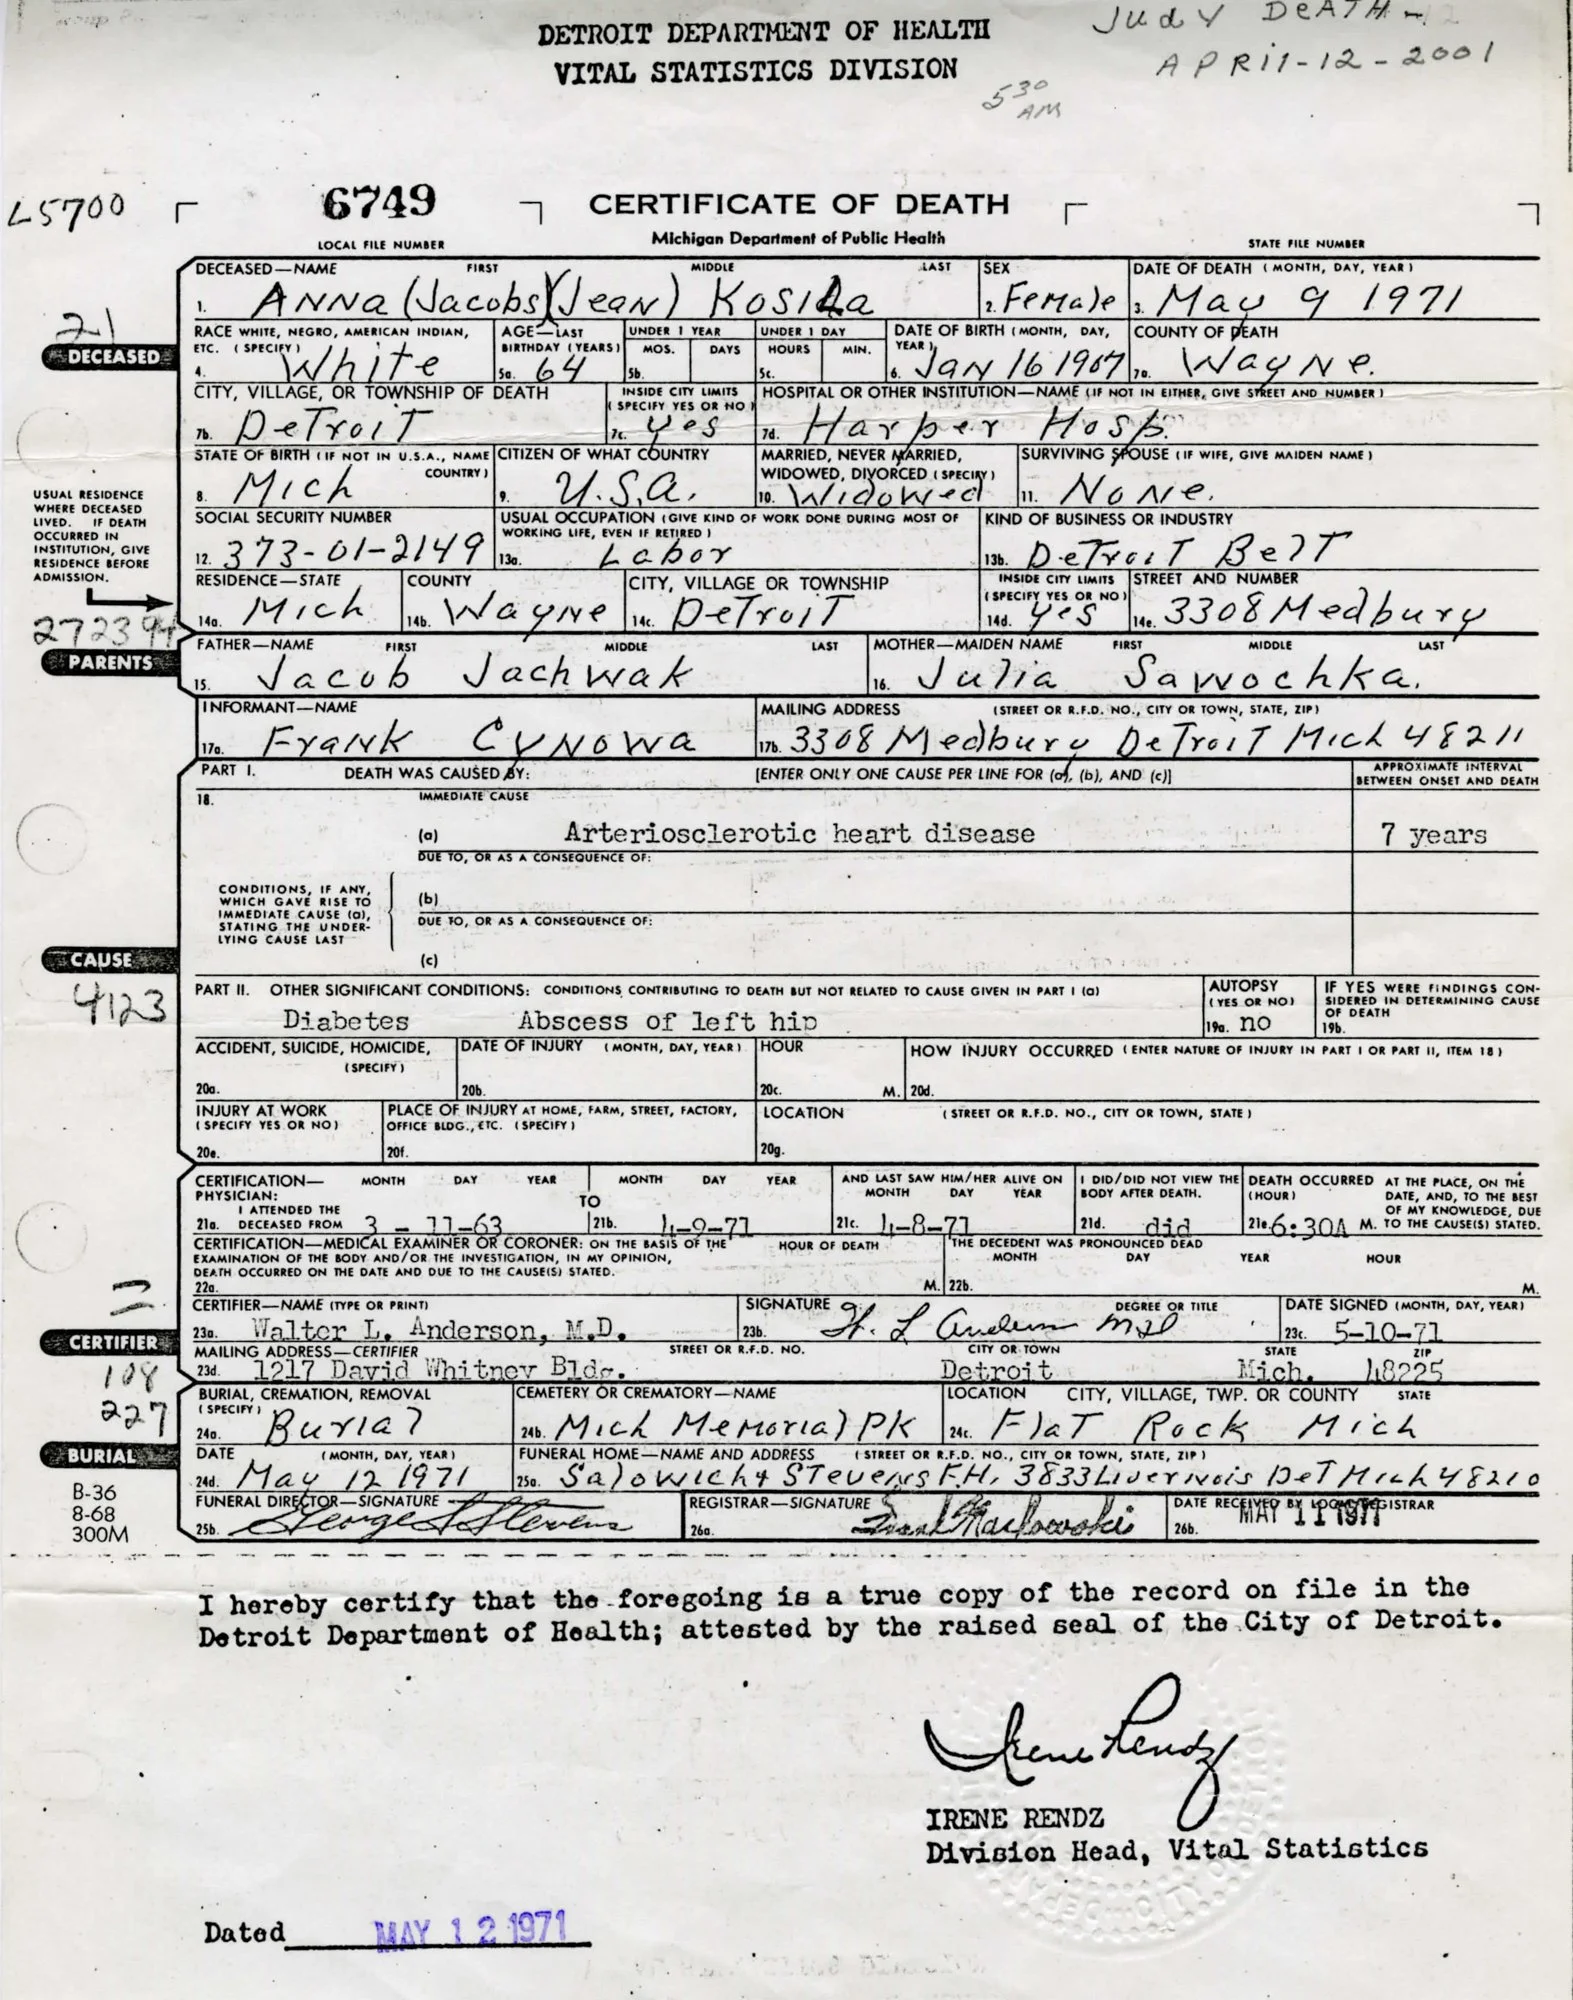 Judy DeATH -
APRil-12-2001
DETROIT DEPARTMENT OF HEALTH
VITAL STATISTICS DIVISION
5 30
AM
L5700
6749
CERTIFICATE OF DEATH
LOCAL FILE NUMBER
Michigan Department of Public Health
STATE FILE NUMBER
DECEASED—NAME FIRST MIDDLE LAST SEX DATE OF DEATH (MONTH, DAY, YEAR)
1. ANNa (Jacobs)(Jean) KOSILa 2. FeMale 3. May 9 1971
21
DECEASED
RACE WHITE, NEGRO, AMERICAN INDIAN, AGE—LAST UNDER 1 YEAR UNDER 1 DAY DATE OF BIRTH (MONTH, DAY, COUNTY OF DEATH
ETC. (SPECIFY) BIRTHDAY (YEARS) MOS. DAYS HOURS MIN. YEAR)
4. White 5a. 64 5b. 5c. 6. JAN 16 1907 7a. WayNe.
CITY, VILLAGE, OR TOWNSHIP OF DEATH INSIDE CITY LIMITS HOSPITAL OR OTHER INSTITUTION—NAME (IF NOT IN EITHER, GIVE STREET AND NUMBER)
(SPECIFY YES OR NO)
7b. DeTroiT 7c. yes 7d. Harper Hosp.
STATE OF BIRTH (IF NOT IN U.S.A., NAME CITIZEN OF WHAT COUNTRY MARRIED, NEVER MARRIED, SURVIVING SPOUSE (IF WIFE, GIVE MAIDEN NAME)
COUNTRY) WIDOWED, DIVORCED (SPECIFY)
8. Mich 9. U.S.a. 10. Widowed 11. NoNe.
USUAL RESIDENCE
WHERE DECEASED
LIVED. IF DEATH
OCCURRED IN
INSTITUTION, GIVE
RESIDENCE BEFORE
ADMISSION.
SOCIAL SECURITY NUMBER USUAL OCCUPATION (GIVE KIND OF WORK DONE DURING MOST OF KIND OF BUSINESS OR INDUSTRY
WORKING LIFE, EVEN IF RETIRED)
12. 373-01-2149 13a. Labor 13b. DeTroiT BelT
RESIDENCE—STATE COUNTY CITY, VILLAGE OR TOWNSHIP INSIDE CITY LIMITS STREET AND NUMBER
(SPECIFY YES OR NO)
14a. Mich 14b. WayNe 14c. DeTroiT 14d. yes 14e. 3308 Medbury
272394
PARENTS
FATHER—NAME FIRST MIDDLE LAST MOTHER—MAIDEN NAME FIRST MIDDLE LAST
15. Jacob Jachwak 16. Julia Sawochka.
INFORMANT—NAME MAILING ADDRESS (STREET OR R.F.D. NO., CITY OR TOWN, STATE, ZIP)
17a. FraNk CYNOWa 17b. 3308 Medbury DeTroiT Mich 48211
PART I. DEATH WAS CAUSED BY: [ENTER ONLY ONE CAUSE PER LINE FOR (a), (b), AND (c)] APPROXIMATE INTERVAL
BETWEEN ONSET AND DEATH
18. IMMEDIATE CAUSE
(a) Arteriosclerotic heart disease 7 years
DUE TO, OR AS A CONSEQUENCE OF:
CONDITIONS, IF ANY,
WHICH GAVE RISE TO
IMMEDIATE CAUSE (a),
STATING THE UNDER-
LYING CAUSE LAST
(b)
DUE TO, OR AS A CONSEQUENCE OF:
(c)
CAUSE
4123
PART II. OTHER SIGNIFICANT CONDITIONS: CONDITIONS CONTRIBUTING TO DEATH BUT NOT RELATED TO CAUSE GIVEN IN PART I (a) AUTOPSY IF YES WERE FINDINGS CON-
(YES OR NO) SIDERED IN DETERMINING CAUSE
OF DEATH
Diabetes Abscess of left hip 19a. no 19b.
ACCIDENT, SUICIDE, HOMICIDE, DATE OF INJURY (MONTH, DAY, YEAR) HOUR HOW INJURY OCCURRED (ENTER NATURE OF INJURY IN PART I OR PART II, ITEM 18)
(SPECIFY)
20a. 20b. 20c. M. 20d.
INJURY AT WORK PLACE OF INJURY AT HOME, FARM, STREET, FACTORY, LOCATION (STREET OR R.F.D. NO., CITY OR TOWN, STATE)
(SPECIFY YES OR NO) OFFICE BLDG., ETC. (SPECIFY)
20e. 20f. 20g.
CERTIFICATION— MONTH DAY YEAR MONTH DAY YEAR AND LAST SAW HIM/HER ALIVE ON I DID/DID NOT VIEW THE DEATH OCCURRED AT THE PLACE, ON THE
PHYSICIAN: TO MONTH DAY YEAR BODY AFTER DEATH. (HOUR) DATE, AND, TO THE BEST
I ATTENDED THE OF MY KNOWLEDGE, DUE
21a. DECEASED FROM 3 - 11-63 21b. 4-9-71 21c. 4-8-71 21d. did 21e. 6:30A M. TO THE CAUSE(S) STATED.
CERTIFICATION—MEDICAL EXAMINER OR CORONER: ON THE BASIS OF THE HOUR OF DEATH THE DECEDENT WAS PRONOUNCED DEAD
EXAMINATION OF THE BODY AND/OR THE INVESTIGATION, IN MY OPINION, MONTH DAY YEAR HOUR
DEATH OCCURRED ON THE DATE AND DUE TO THE CAUSE(S) STATED.
22a. M. 22b. M.
CERTIFIER—NAME (TYPE OR PRINT) SIGNATURE DEGREE OR TITLE DATE SIGNED (MONTH, DAY, YEAR)
23a. Walter L. Anderson, M.D. 23b. W. L Anderson MD 23c. 5-10-71
CERTIFIER
MAILING ADDRESS—CERTIFIER STREET OR R.F.D. NO. CITY OR TOWN STATE ZIP
23d. 1217 David Whitney Bldg. Detroit Mich. 48225
108
227
BURIAL, CREMATION, REMOVAL CEMETERY OR CREMATORY—NAME LOCATION CITY, VILLAGE, TWP. OR COUNTY STATE
(SPECIFY)
24a. Burial 24b. Mich Memorial PK 24c. FlaT Rock Mich
BURIAL
DATE (MONTH, DAY, YEAR) FUNERAL HOME—NAME AND ADDRESS (STREET OR R.F.D. NO., CITY OR TOWN, STATE, ZIP)
24d. May 12 1971 25a. Salowich & STevens F.H. 3833 Livernois DeT Mich 48210
B-36
8-68
300M
FUNERAL DIRECTOR—SIGNATURE REGISTRAR—SIGNATURE DATE RECEIVED BY LOCAL REGISTRAR
25b. George S Stevens 26a. 26b. MAY 11 1971
I hereby certify that the foregoing is a true copy of the record on file in the
Detroit Department of Health; attested by the raised seal of the City of Detroit.
Irene Rendz
IRENE RENDZ
Division Head, Vital Statistics
Dated MAY 12 1971